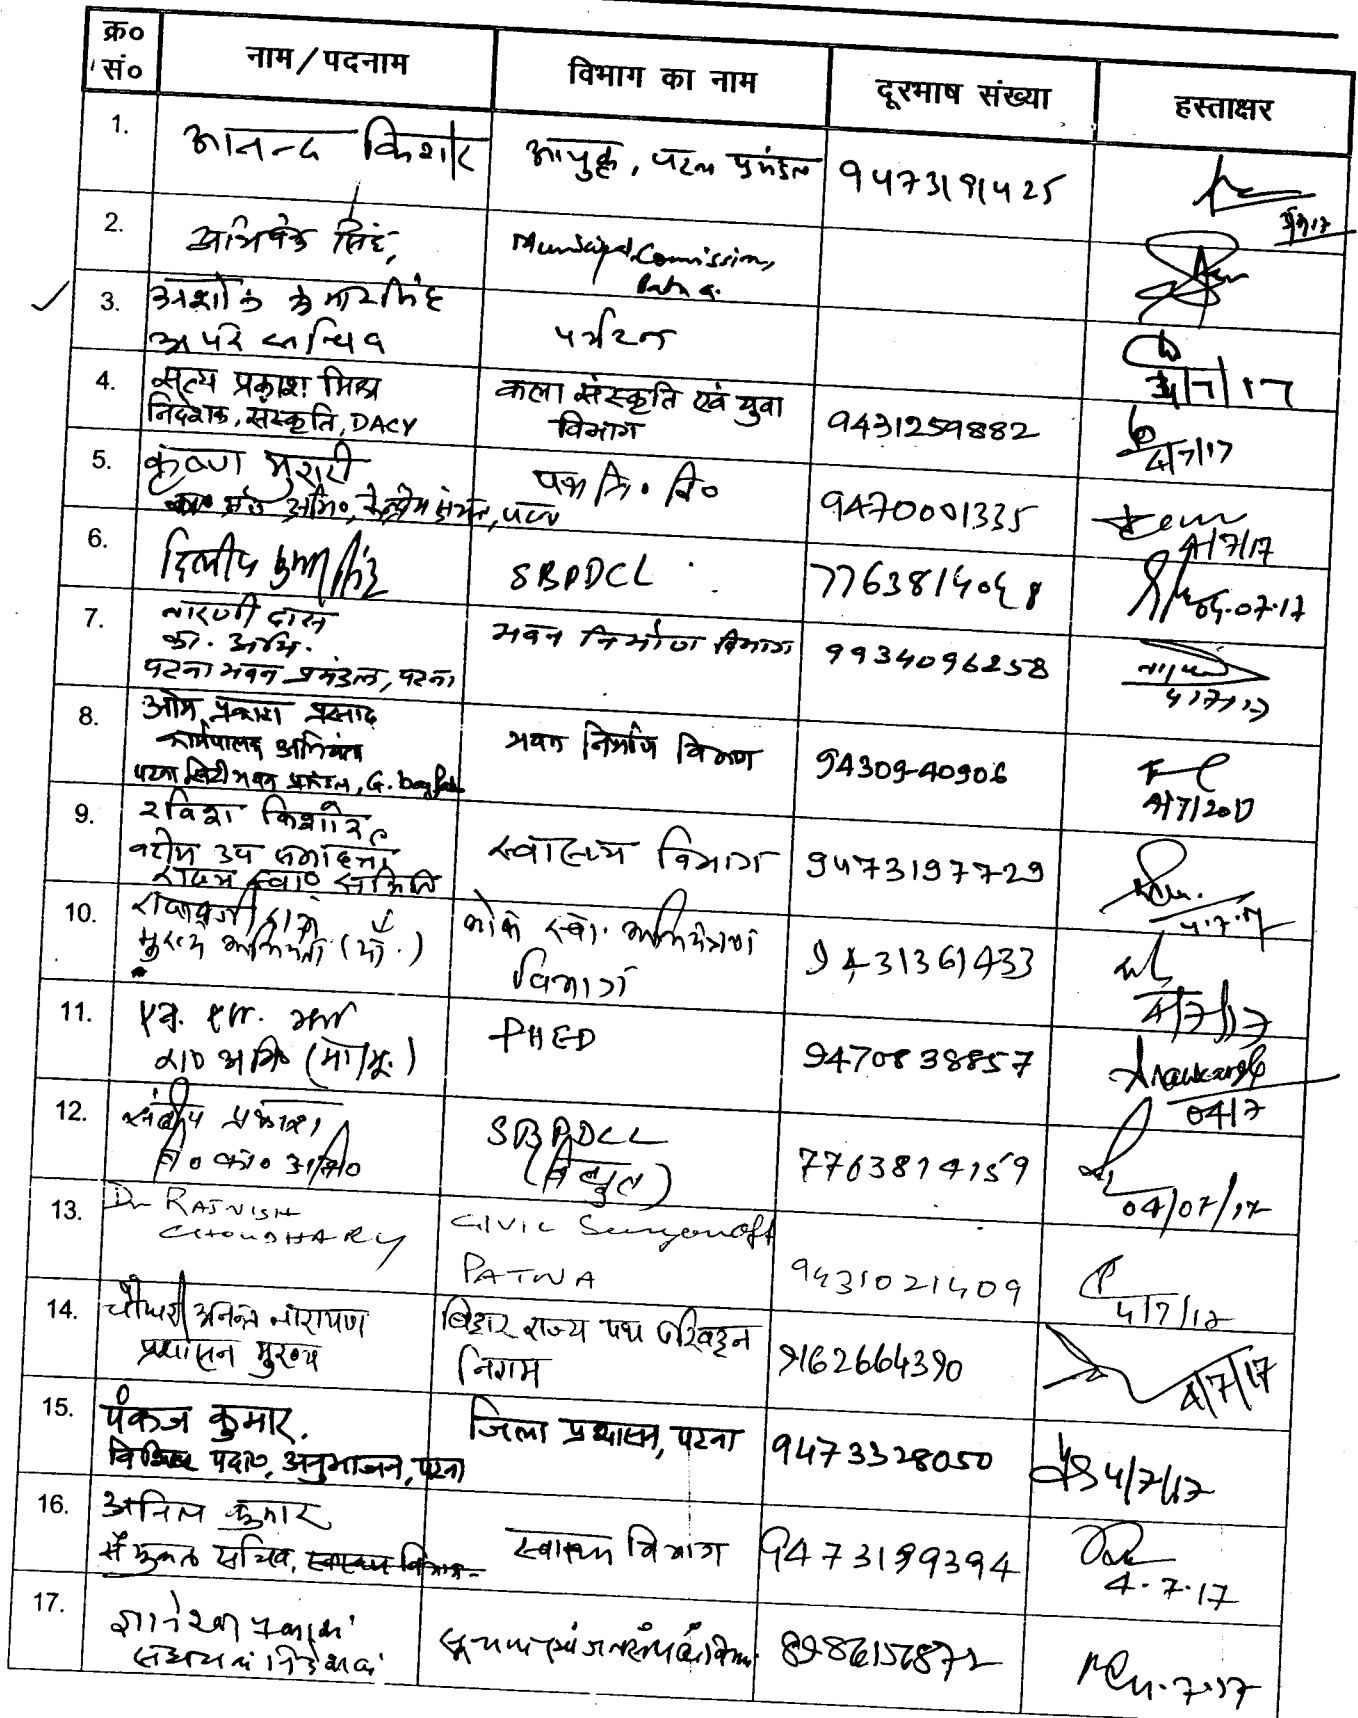 क्र० सं० नाम/पदनाम विभाग का नाम दूरभाष संख्या हस्ताक्षर
1. आनन्द किशोर आयुक्त, पटना प्रमंडल 9473191425
2. अभिषेक सिंह, Municipal Commissioner, Patna.
3. अशोक कुमार सिंह
अपर सचिव
पर्यटन
4/7/17
4. सत्य प्रकाश मिश्र
निदेशक, संस्कृति, DACY
कला संस्कृति एवं युवा
विभाग
9431259882
4/7/17
5. कृष्ण मुरारी
पथ नि० वि०
9470001335
4/7/17
6. दिलीप कुमार सिंह SBPDCL 7763814048
04.07.17
7. तारणी दास
का. अभि.
पटना भवन प्रमंडल, पटना
भवन निर्माण विभाग
9934096258
4/7/17
8. ओम प्रकाश प्रसाद
कार्यपालक अभियंता
पटना सिटी भवन प्रमंडल,
भवन निर्माण विभाग
9430940906
4/7/2017
9. रविश किशोर
वरीय उप समाहर्ता
राज्य स्वा० समिति
स्वास्थ्य विभाग
9473197729
4.7.17
10. मुख्य अभियंता
लोक स्वा. अभियंत्रण
विभाग
9431361433
4/7/17
11. एस. एन.
का० अभि०
PHED
9470838857
04/7
12. संदीप प्रकाश
वि० का० अभि०
SBPDCL
(विद्युत)
7763814159
04/07/17
13. Dr RAJNISH
CHOUDHARY
CIVIL Surgeon Off
PATNA
9431021409
4/7/17
14. चौधरी अनन्त नारायण
प्रशासन मुख्य
बिहार राज्य पथ परिवहन
निगम
9162664390
4/7/17
15. पंकज कुमार.
पदा०, अनुभाजन, पटना
जिला प्रशासन, पटना
9473328050
4/7/17
16. अनिल कुमार
संयुक्त सचिव, स्वास्थ्य विभाग
स्वास्थ्य विभाग
9473199394
4.7.17
17. ज्ञानेश्वर प्रकाश
सहायक निदेशक
सूचना एवं जनसंपर्क विभाग
8986156872
4.7.17